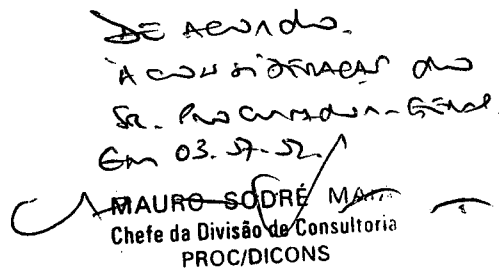 De acordo.
À consideração do
Sr. Procurador-Geral.
Em 03.
MAURO SODRÉ
Chefe da Divisão de Consultoria
PROC/DICONS